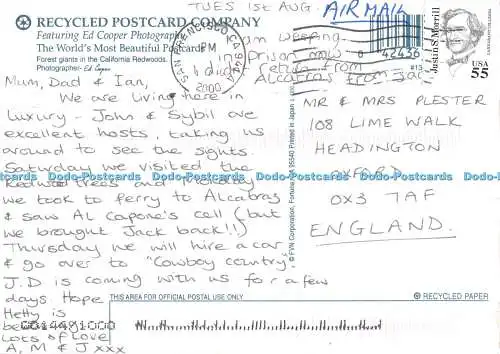 TUES 1st AUG.
AIR MAIL
RECYCLED POSTCARD COMPANY
Featuring Ed Cooper Photography
The World's Most Beautiful Postcards
Forest giants in the California Redwoods.
Photographer- Ed Cooper
SAN FRANCISCO CA 941
PM
2000
am weeping
in prison now
Alcatraz from Jack
42436
Justin S. Morrill
USA
55
Mum, Dad & Ian,
We are living here in
luxury - John & Sybil are
excellent hosts, taking us
around to see the sights.
Saturday we visited the
Redwood trees and Monday
we took to ferry to Alcatraz
& saw Al Capone's cell (but
we brought Jack back!!)
Thursday we will hire a car
& go over to "Cowboy country".
J.D is coming with us for a few
days. Hope
Hetty is
Lots of Love
A, M & J xxx
MR & MRS PLESTER
108 LIME WALK
HEADINGTON
OXFORD
OX3 7AF
ENGLAND.
THIS AREA FOR OFFICIAL POSTAL USE ONLY
RECYCLED PAPER
0014491000
Dodo-Postcards Dodo-Postcards Dodo-Postcards Dodo-Postcards